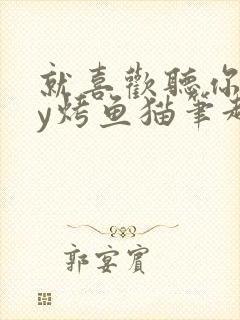 就喜歡聽你
y烤鱼猫筆趣
郭宴賓